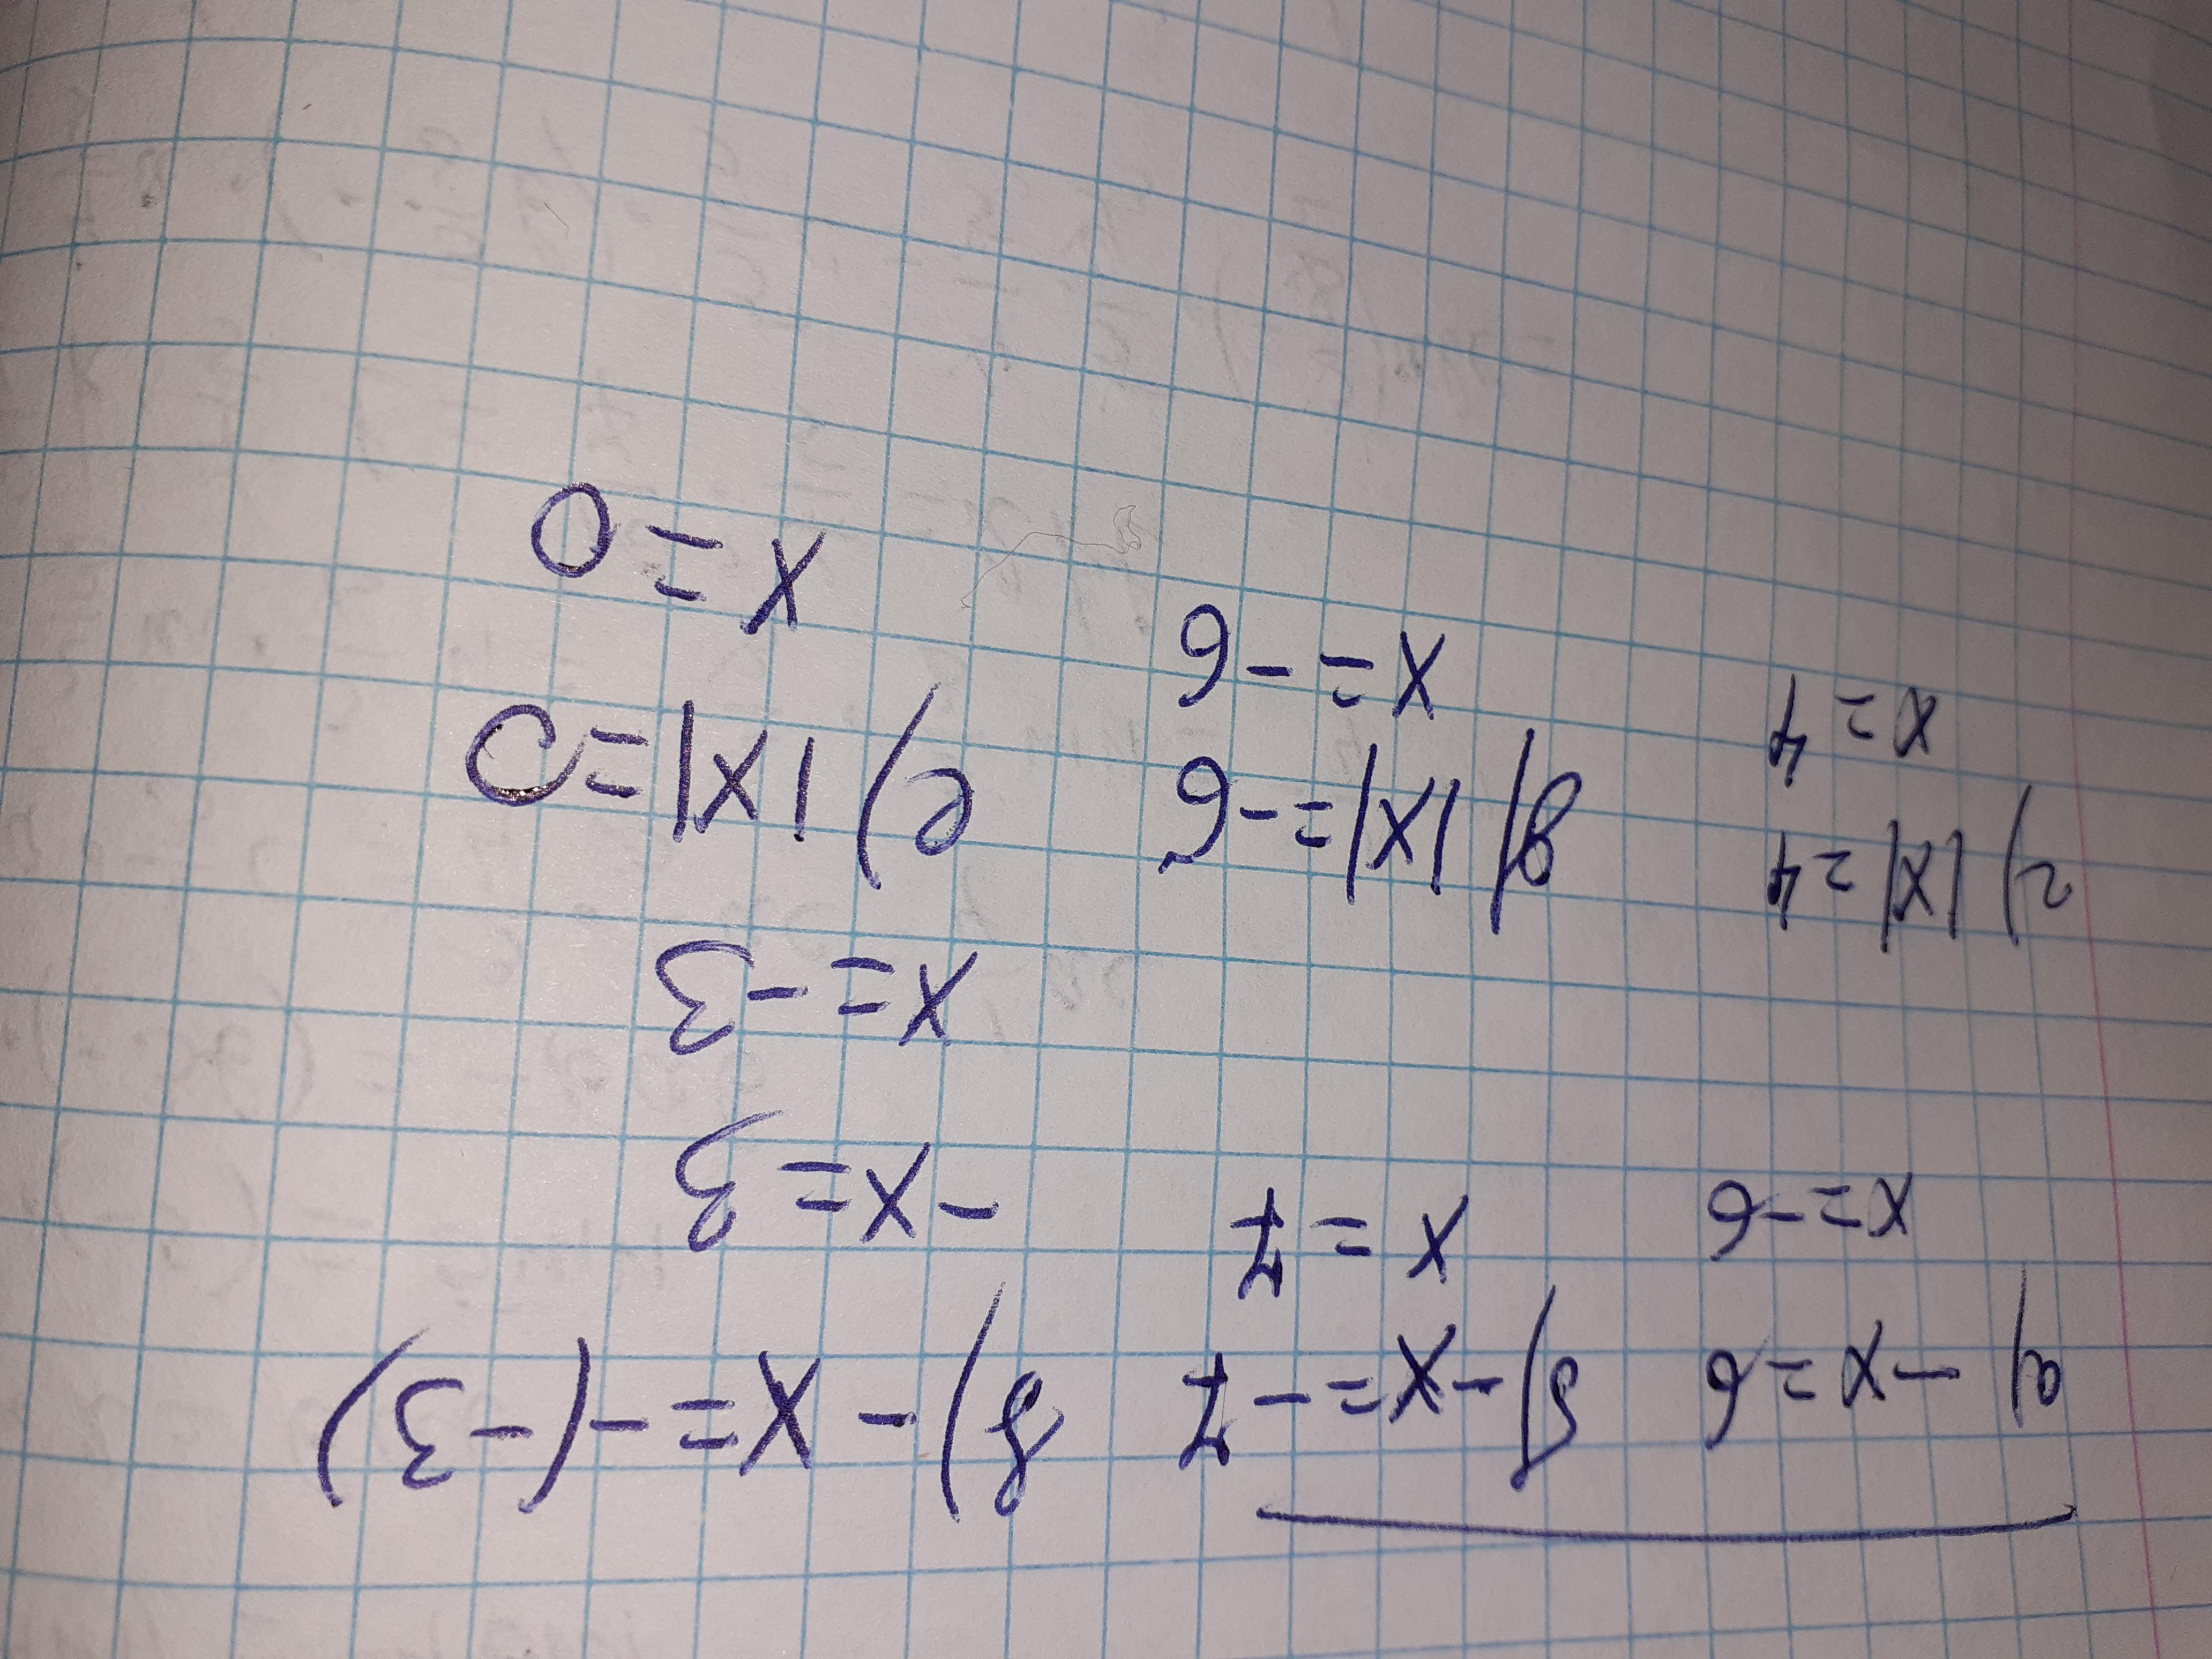 а) -x=6
x=-6
б) -x=-7
x=7
в) -x=-(-3)
-x=3
x=-3
г) |x|=4
x=4
д) |x|=-6
x=-6
е) |x|=0
x=0